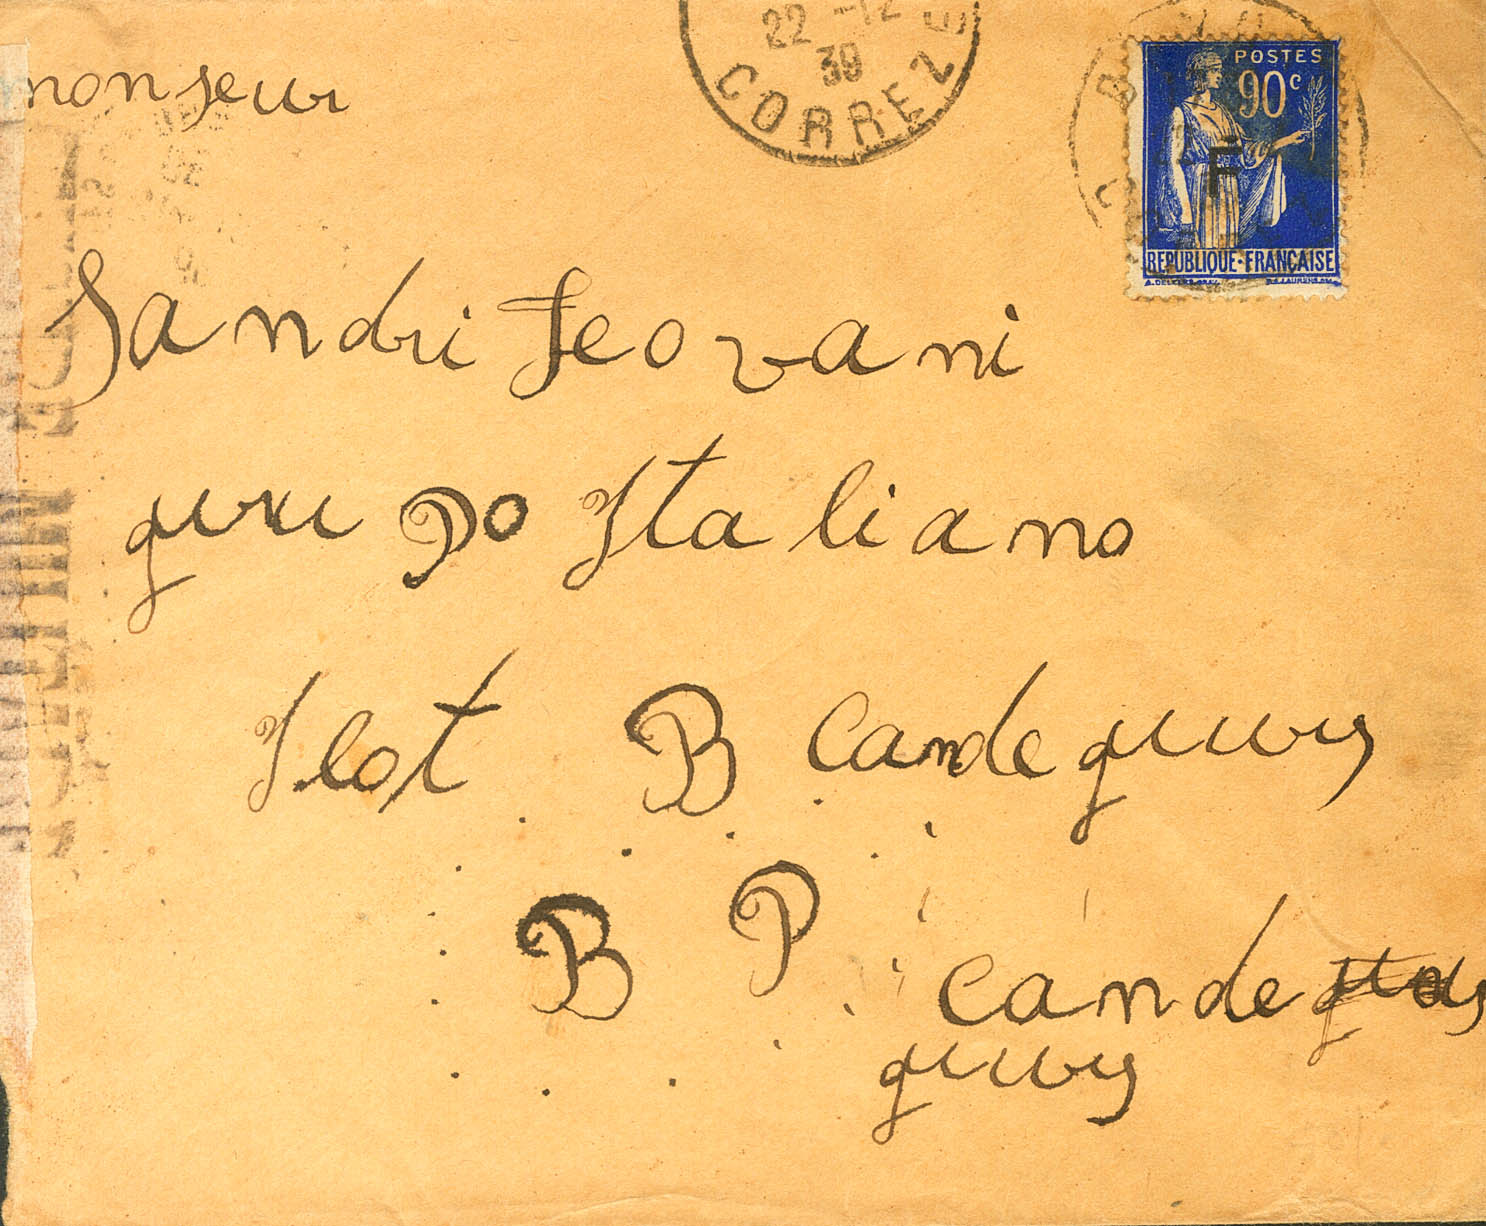 monseur
22 -12
39
CORREZE
POSTES
90c
F
REPUBLIQUE·FRANÇAISE
Sandri Jeovani
gurupo Italiano
Ilot B Camdegurys
B P. Camde
gurys